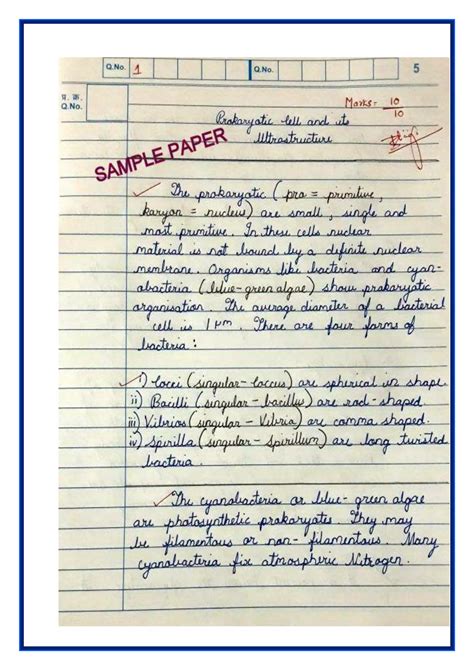 Q.No. 1 Q.No. 5
प्र. क्र.
Q.No.
Marks = 10/10
Prokaryotic Cell and its
Ultrastructure
SAMPLE PAPER
The prokaryotic (pro = primitive,
karyon = nucleus) are small, single and
most primitive. In these cells nuclear
material is not bound by a definite nuclear
membrane. Organisms like bacteria and cyan-
obacteria (blue-green algae) show prokaryotic
organisation. The average diameter of a bacterial
cell is 1 μm. There are four forms of
bacteria:
i) Cocci (singular - coccus) are spherical in shape.
ii) Bacilli (singular - bacillus) are rod-shaped.
iii) Vibrios (singular - Vibrio) are comma shaped.
iv) Spirilla (singular - Spirillum) are long twisted
bacteria.
The cyanobacteria or blue-green algae
are photosynthetic prokaryotes. They may
be filamentous or non-filamentous. Many
cyanobacteria fix atmospheric Nitrogen.